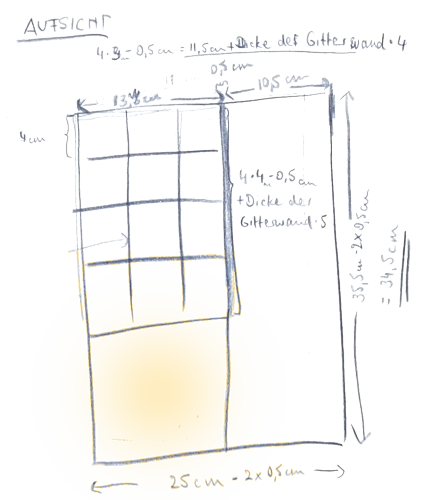 AUFSICHT
4·3 - 0,5cm = 11,5cm + Dicke der Gitterwand · 4
0,5cm
10,5cm
4cm
4·4 - 0,5cm
+ Dicke der
Gitterwand · 5
35,5cm - 2x0,5cm
= 34,5cm
25cm - 2x0,5cm